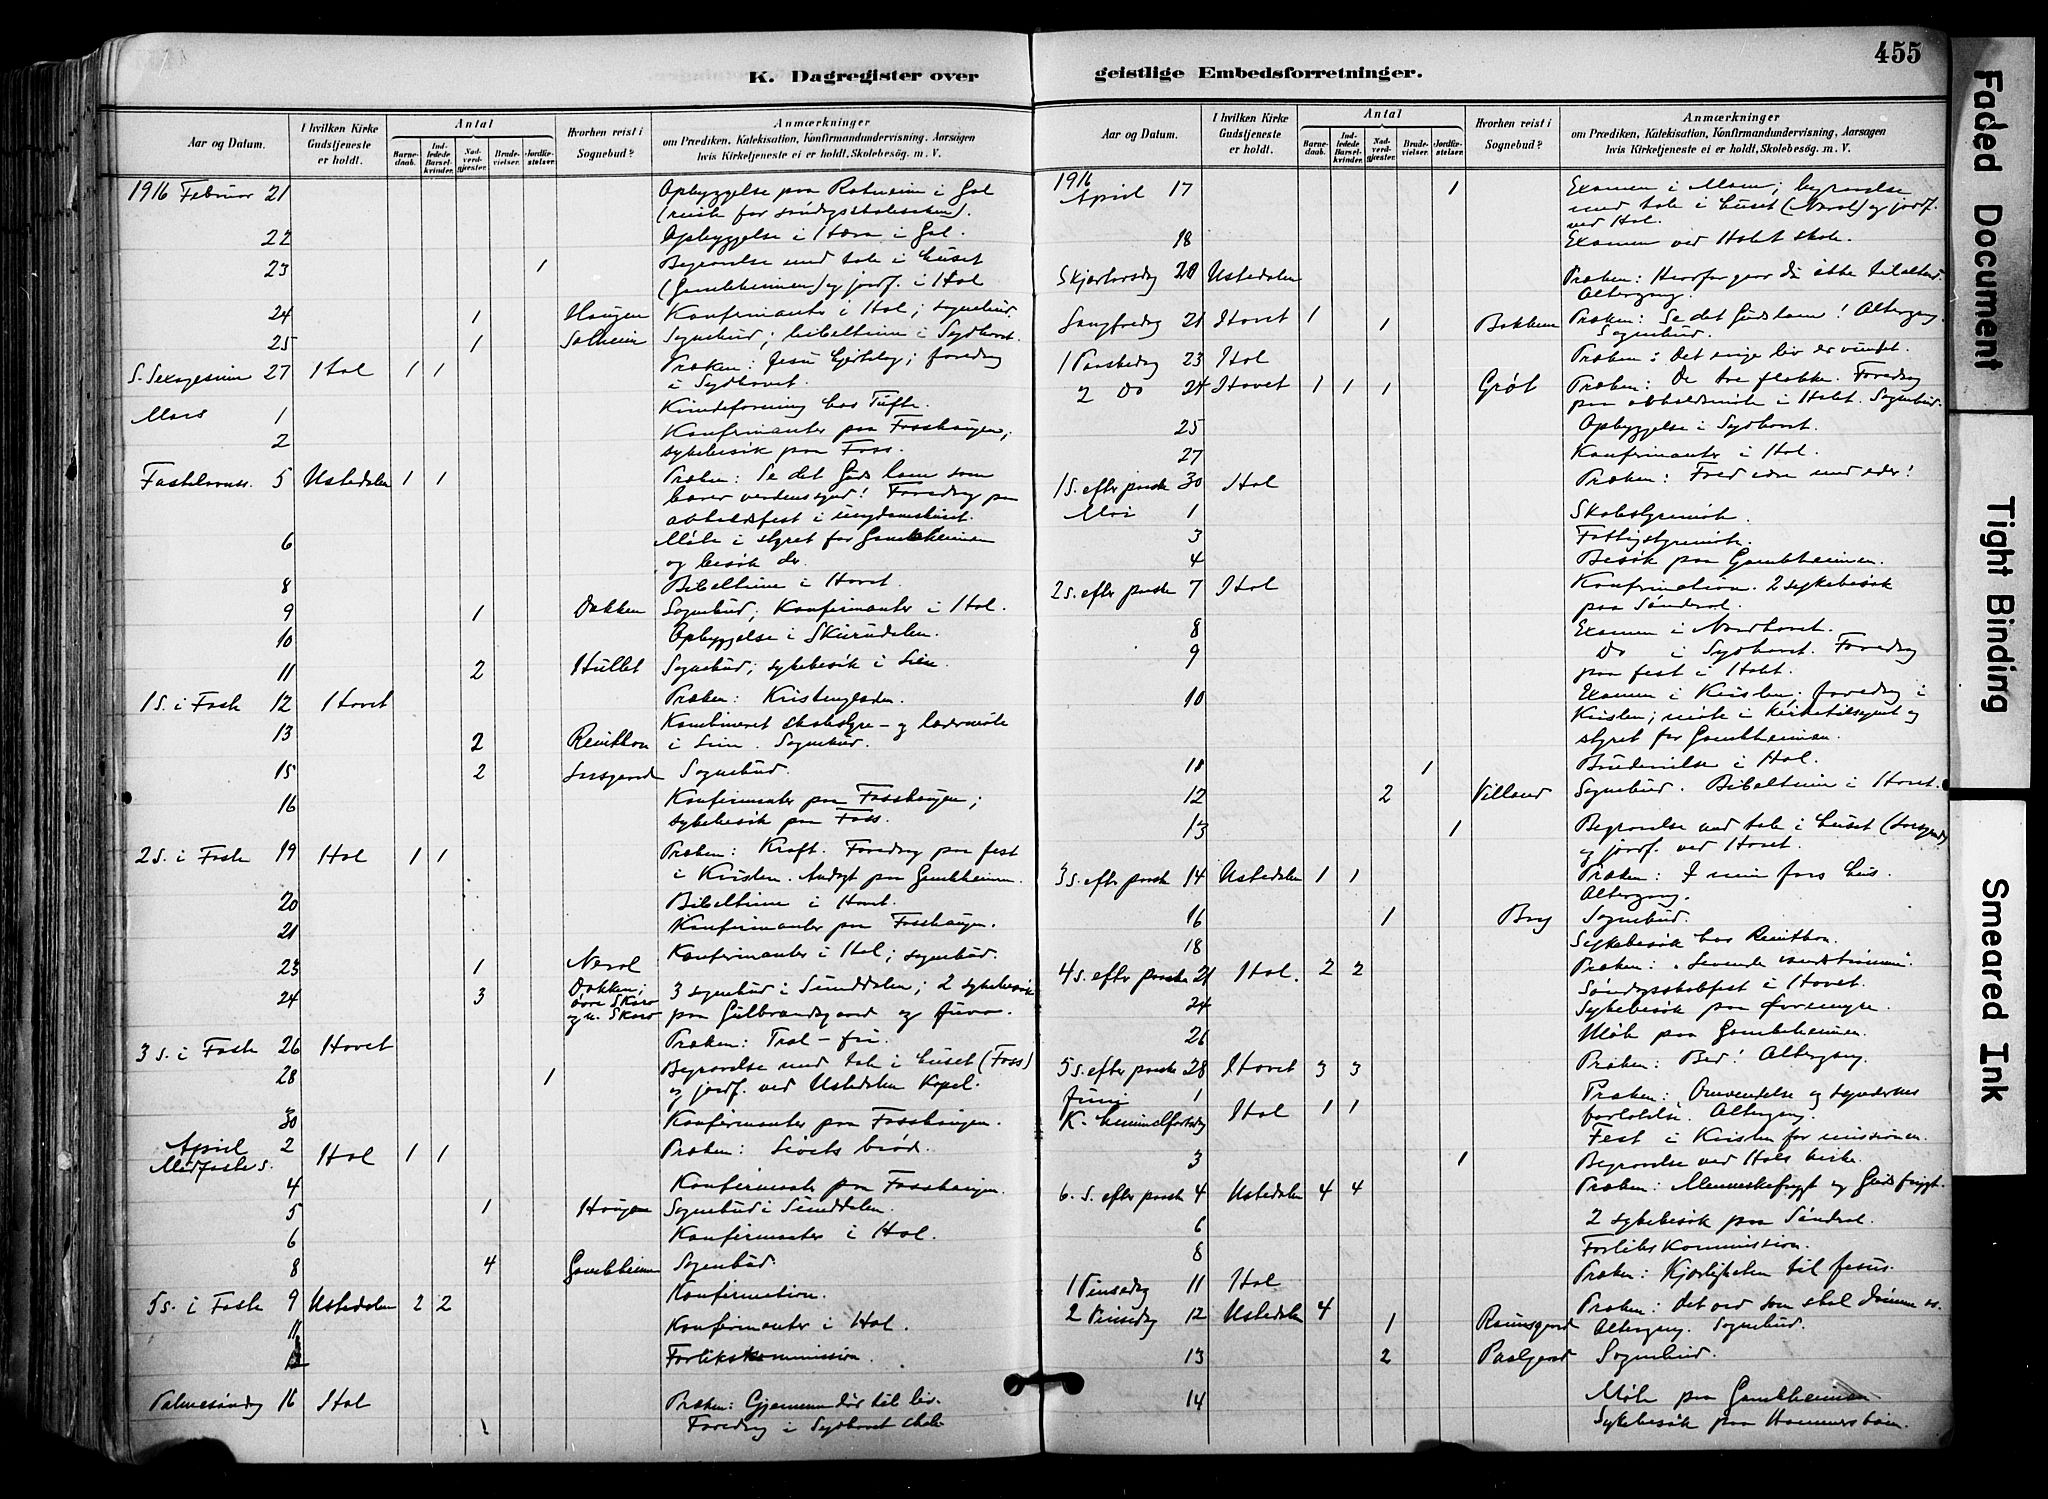 455
K. Dagregister over
geistlige Embedsforretninger.
Aar og Datum. I hvilken Kirke Gudstjeneste er holdt. Antal Barnedaab. Indledede Barselkvinder. Nadverdgjester. Brudevielser. Jordfæstelser. Hvorhen reist i Sognebud? Anmærkninger
om Prædiken, Katekisation, Konfirmandundervisning, Aarsagen
hvis Kirketjeneste ei er holdt, Skolebesøg. m. V.
1916 Februar 21 Opbyggelse paa Rotneim i Gol
(reiste for søndagsskolesaken).
22 Opbyggelse i Hern i Gol.
23 1 Begravelse med tale i huset
(Gamleheimen) og jordf. i Hol
24 1 Haugen Konfirmanter i Hol; sognebud.
25 1 Solheim Sognebud; bibeltime i Sydhovet.
S. Sexagesima 27 Hol 1 1 Præken: Jesu ; foredrag
i Sydhovet.
Mars 1 Kvindeforening hos Tufte.
2 Konfirmanter paa Fosshaugen;
sykebesøk paa Foss.
Fastelavnss. 5 Ustedalen 1 1 Præken: Se det Guds lam som
bærer verdens synd! Foredrag paa
avholdsfest i ungdomshuset.
6 Møte i styret for Gamleheimen
og besøk der.
8 Bibeltime i Hovet.
9 1 Dokken Sognebud; Konfirmanter i Hol.
10 Opbyggelse i Skurudalen.
11 2 Hullet Sognebud; sykebesøk i Lien.
1 S. i Faste 12 Hovet Præken: Kristenglæden.
13 2 Reinton Kombineret skolestyre- og lærermøte
i Lien. Sognebud.
15 2 Larsgaard Sognebud.
16 Konfirmanter paa Fosshaugen;
sykebesøk paa Foss.
2 S. i Faste 19 Hol 1 1 Præken: Kraft. Foredrag paa fest
i Kvislen. Andagt paa Gamleheimen.
20 Bibeltime i Hovet.
21 Konfirmanter paa Fosshaugen.
23 1 Neraal Konfirmanter i Hol; sognebud.
24 3 Dokken; øvre Skaro og n. Skaro 3 sognebud i Sunddalen; 2 sykebesøk
paa Gulbrandsgaard og Juva.
3 s. i Faste 26 Hovet Præken: Træl – fri.
28 1 Begravelse med tale i huset (Foss)
og jordf. ved Ustedalen Kapel.
30 Konfirmanter paa Fosshaugen.
April 2 Midfaste s. Hol 1 1 Præken: Livets brød.
4 Konfirmanter paa Fosshaugen.
5 1 Haugen Sognebud i Sunddalen.
6 Konfirmanter i Hol.
8 4 Gamleheimen Sognebud.
5 s. i Faste 9 Ustedalen 2 2 Konfirmation.
11 Konfirmanter i Hol.
Forlikskommission.
Palmesøndag 16 Hol Præken: Gjennem død til liv.
Foredrag i Sydhovet skole
Aar og Datum. I hvilken Kirke Gudstjeneste er holdt. Antal Barnedaab. Indledede Barselkvinder. Nadverdgjester. Brudevielser. Jordfæstelser. Hvorhen reist i Sognebud? Anmærkninger
om Prædiken, Katekisation, Konfirmandundervisning, Aarsagen
hvis Kirketjeneste ei er holdt, Skolebesøg. m. V.
1916 April 17 1 Examen i Moen; begravelse
med tale i huset (Neraal) og jordf.
ved Hol.
18 Examen ved Holet skole.
Skjærtorsdag 20 Ustedalen Præken: Hvorfor gaar du ikke til alters?
Altergang.
Langfredag 21 Hovet 1 1 Bakken Præken: Se det Guds lam! Altergang.
Sognebud.
1 Paaskedag 23 Hol Præken: Det evige liv er vundet.
2 Do 24 Hovet 1 1 1 Grøt Præken: De tre flokke. Foredrag
paa avholdsmøte i Holet. Sognebud.
25 Opbyggelse i Sydhovet.
27 Konfirmanter i Hol.
1 S. efter paaske 30 Hol Præken: Fred være med eder!
Mai 1 Skolestyremøte.
3 Fattigstyremøte.
4 Besøk paa Gamleheimen.
2 s. efter paaske 7 Hol Konfirmation. 2 sykebesøk
paa Søndraal.
8 Examen i Nordhovet.
9 Do i Sydhovet. Foredrag
paa fest i Holet.
10 Examen i Kvislen; foredrag i
Kvislen; møte i kirketilsynet og
styret for Gamleheimen.
11 1 Brudevielse i Hol.
12 2 Villand Sognebud. Bibeltime i Hovet.
13 1 Begravelse med tale i huset (Larsgaard)
og jordf. ved Hovet.
3 s. efter paaske 14 Ustedalen 1 1 Præken: I min fars hus.
Altergang.
16 1 Brag Sognebud.
18 Sykebesøk hos Reinton.
4 s. efter paaske 21 Hol. 2 2 Præken: "Levende vandstrømme".
Søndagsskolefest i Hovet.
24 Sykebesøk paa Øvrengre.
26 Møte paa Gamleheimen.
5 s. efter paaske 28 Hovet 3 3 Præken: Bed! Altergang.
Juni 1 K. himmelfartsdag Hol 1 1 Præken: Omvendelse og syndernes
forlatelse. Altergang.
Fest i Kvislen for missionen.
3 1 Begravelse ved Hols kirke.
6. s. efter paaske 4 Ustedalen 4 4 Præken: Menneskefrygt og Gudsfrygt.
6 2 sykebesøk paa Søndraal.
8 Forlikskommission.
1 Pinsedag 11 Hol Præken: Kjærligheten til Jesus.
2 Pinsedag 12 Ustedalen 4 1 Raunsgaard Præken: Det ord som skal dømme os.
Altergang. Sognebud.
13 2 Paalgaard Sognebud.
14 Møte paa Gamleheimen
Sykebesøk paa Hammersbøen.
Faded Document
Tight Binding
Smeared Ink